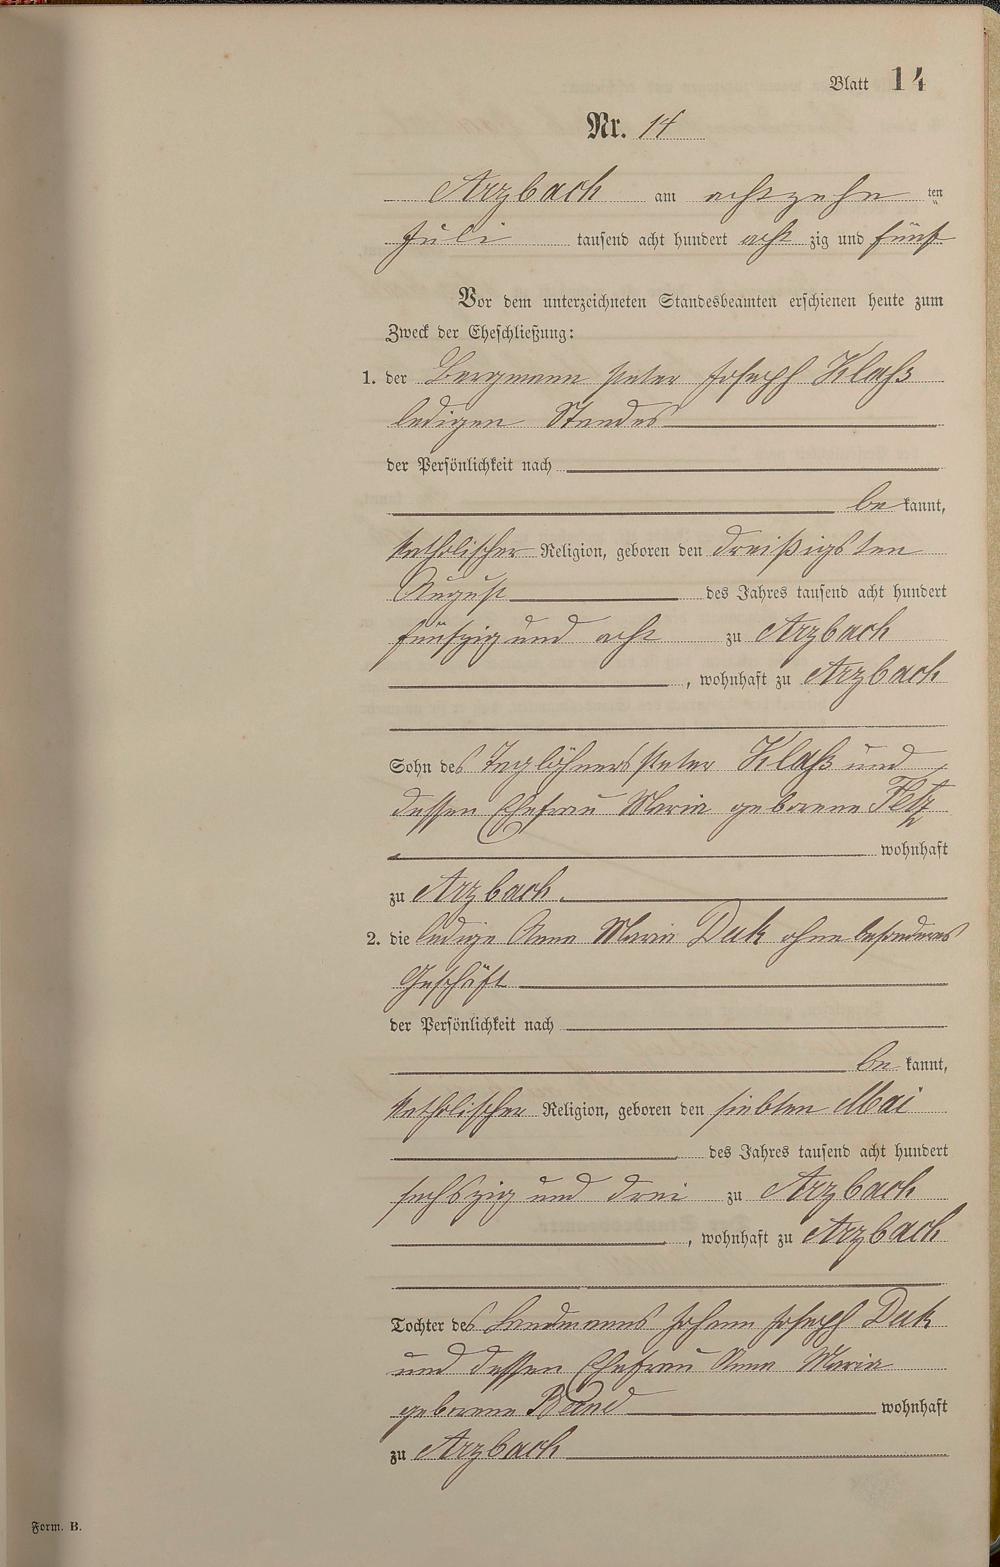 Blatt 14
Nr. 14
Arzbach am achtzehn ten
Juli tausend acht hundert acht zig und fünf
Vor dem unterzeichneten Standesbeamten erschienen heute zum
Zweck der Eheschließung:
1. der Bergmann Peter Joseph Klaß
ledigen Standes
der Persönlichkeit nach
be kannt,
katholischer Religion, geboren den dreißigsten
August des Jahres tausend acht hundert
fünfzig und acht zu Arzbach
, wohnhaft zu Arzbach
Sohn des Taglöhners Peter Klaß und
dessen Ehefrau Maria geborene Fetz
wohnhaft
zu Arzbach.
2. die ledige Anna Maria Duk ohne besonderes
Geschäft
der Persönlichkeit nach
be kannt,
katholischer Religion, geboren den siebten Mai
des Jahres tausend acht hundert
sechszig und drei zu Arzbach
, wohnhaft zu Arzbach
Tochter des Landmanns Johann Joseph Duk
und dessen Ehefrau Anna Maria
geborene wohnhaft
zu Arzbach
Form. B.